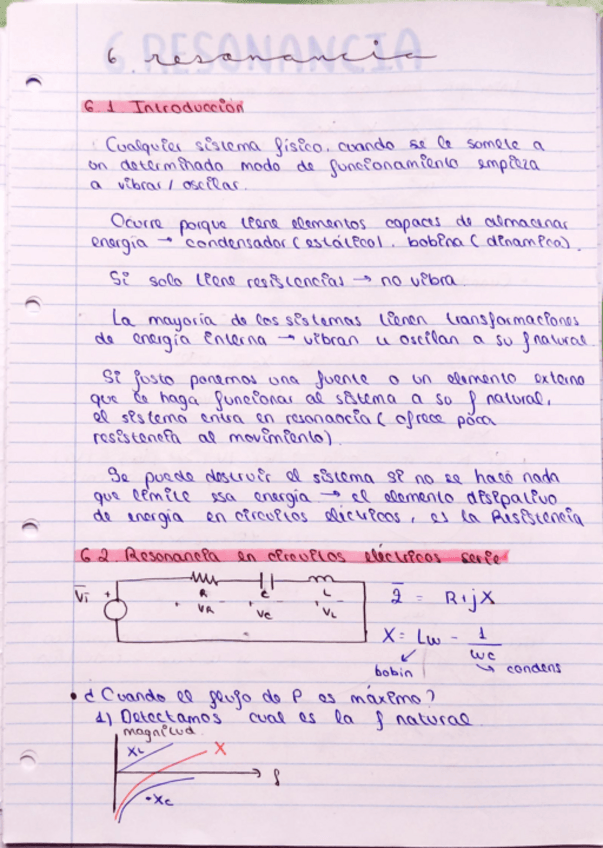 6. RESONANCIA
resonancia
6.1. Introducción
Cualquier sistema físico, cuando se le somete a
un determinado modo de funcionamiento empieza
a vibrar / oscilar.
Ocurre porque tiene elementos capaces de almacenar
energía → condensador (estático), bobina (dinamica).
Si solo tiene resistencias → no vibra.
La mayoría de los sistemas tienen transformaciones
de energía interna → vibran u oscilan a su f natural.
Si justo ponemos una fuente o un elemento externo
que le haga funcionar al sistema a su f natural,
el sistema entra en resonancia (ofrece poca
resistencia al movimiento).
Se puede destruir el sistema si no se hace nada
que limite esa energía → el elemento disipativo
de energía en circuitos eléctricos, es la Resistencia
6.2. Resonancia en circuitos eléctricos serie
Vi + R C L
+ VR - + VC - + VL -
Z = R + jX
X = Lω - 1/ωC
bobin condens
• ¿Cuando el flujo de P es máximo?
1) Detectamos cual es la f natural.
magnitud.
XL X
f
-XC